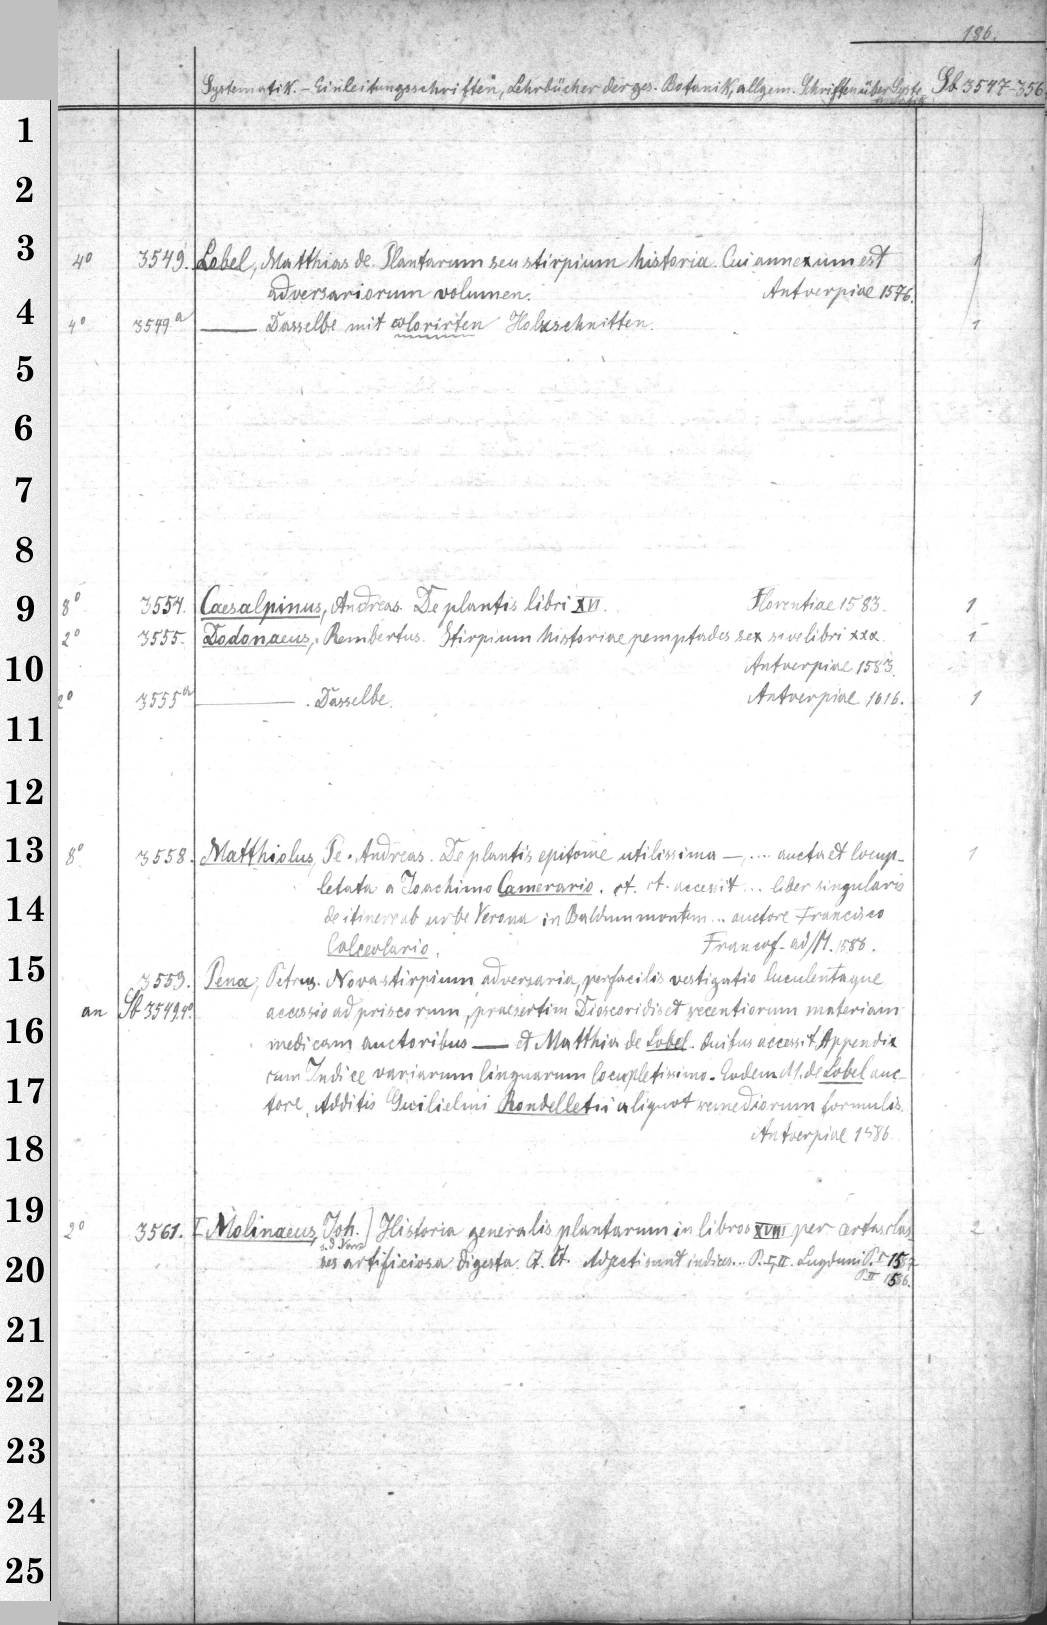 186.
Systematik. - Einleitungsschriften, Lehrbücher der ges. Botanik, allgem. Schriften über Syste Sb 3547-356
matik
1
2
3
4° 3549. Lobel, Matthias de. Plantarum seu stirpium historia. Cui annexum est 1
adversariorum volumen. Antverpiae 1576.
4
4° 3549a ——— Dasselbe mit colorirten Holzschnitten. 1
5
6
7
8
9
8° 3554. Caesalpinus, Andreas. De plantis libri XVI. Florentiae 1583. 1
2° 3555. Dodonaeus, Rembertus. Stirpium historiae pemptades sex sive libri xxx. 1
10
Antverpiae 1583.
2° 3555a ——— . Dasselbe. Antverpiae 1616. 1
11
12
13
8° 3558. Matthiolus, Pe. Andreas. De plantis epitome utilissima —, .... aucta et locup-
letata a Joachimo Camerario. ct. ct. accessit ... liber singularis 1
14
de itinere ab urbe Verona in Baldum montem ... auctore Francisco
Calceolario. Francof. ad/M. 1586.
15
3559. Pena, Petrus. Nova stirpium adversaria, perfacilis vestigatio luculentaque
an Sb 3549.4° accessio ad priscorum, praesertim Dioscoridis et recentiorum materiam
16
medicam auctoribus —— et Matthia de Lobel. Quibus accessit Appendix
cum Indice variarum linguarum locupletissimo. Eodem M. de Lobel auc-
17
tore, Additis Guilielmi Rondelletii aliquot remediorum formulis.
18
Antverpiae 1586.
19
2° 3561. [Molinaeus, Joh.] Historia generalis plantarum in libros XVIII per certas clas 2
20
ses artificiosa digesta. Ct. Ct. Adjecti sunt indices... P. I, II. Lugduni P. I 1587
P. II 1586.
21
22
23
24
25